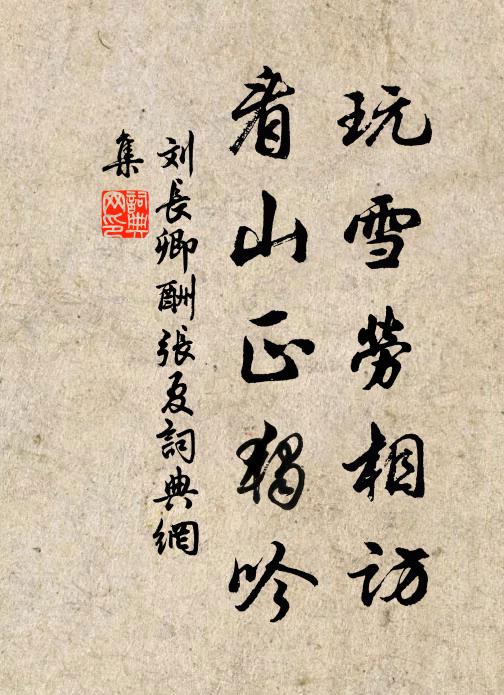 玩雪勞相訪
看山正獨吟
刘長卿酬張夏詞典網
集
詞典
网印